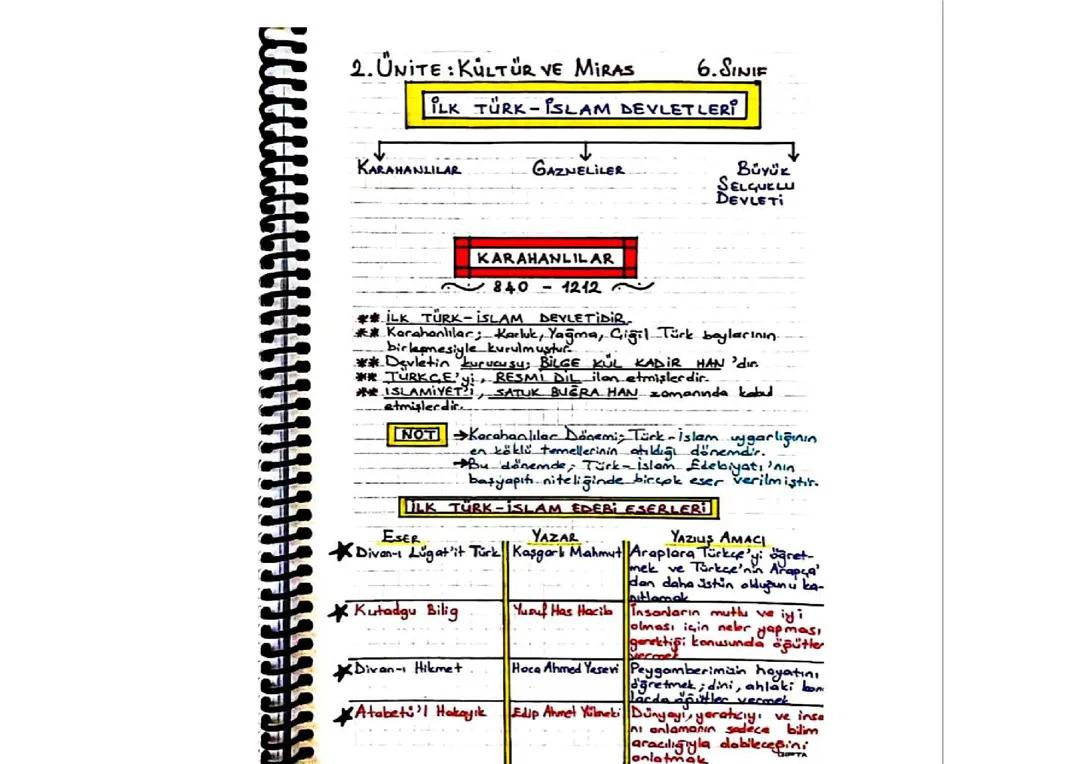 2. ÜNİTE: KÜLTÜR VE MİRAS 6. SINIF
İLK TÜRK-İSLAM DEVLETLERİ
KARAHANLILAR GAZNELİLER BÜYÜK
SELÇUKLU
DEVLETİ
KARAHANLILAR
840 - 1212
** İLK TÜRK-İSLAM DEVLETİDİR.
** Karahanlılar; Karluk, Yağma, Çiğil Türk boylarının
birleşmesiyle kurulmuştur.
** Devletin kurucusu; BİLGE KÜL KADİR HAN 'dır.
** TÜRKÇE'yi, RESMİ DİL ilan etmişlerdir.
** İSLAMİYET'İ, SATUK BUĞRA HAN zamanında kabul
etmişlerdir.
NOT →Karahanlılar Dönemi; Türk-İslam uygarlığının
en köklü temellerinin atıldığı dönemdir.
→Bu dönemde; Türk-İslam Edebiyatı'nın
başyapıtı niteliğinde birçok eser verilmiştir.
İLK TÜRK-İSLAM EDEBİ ESERLERİ
ESER YAZAR YAZILIŞ AMACI
★Divan-ı Lügat'it Türk Kaşgarlı Mahmut Araplara Türkçe'yi öğret-
mek ve Türkçe'nin Arapça'
dan daha üstün olduğunu ka-
nıtlamak
★Kutadgu Bilig Yusuf Has Hacib İnsanların mutlu ve iyi
olması için neler yapması
gerektiği konusunda öğütler
vermek
★Divan-ı Hikmet Hoca Ahmed Yesevi Peygamberimizin hayatını
öğretmek; dini, ahlaki kon
larda öğütler vermek
★Atabetü'l Hakayık Edip Ahmet Yükneki Dünyayı, yaratıcıyı ve insa
nı anlamanın sadece bilim
aracılığıyla olabileceğini
anlatmak